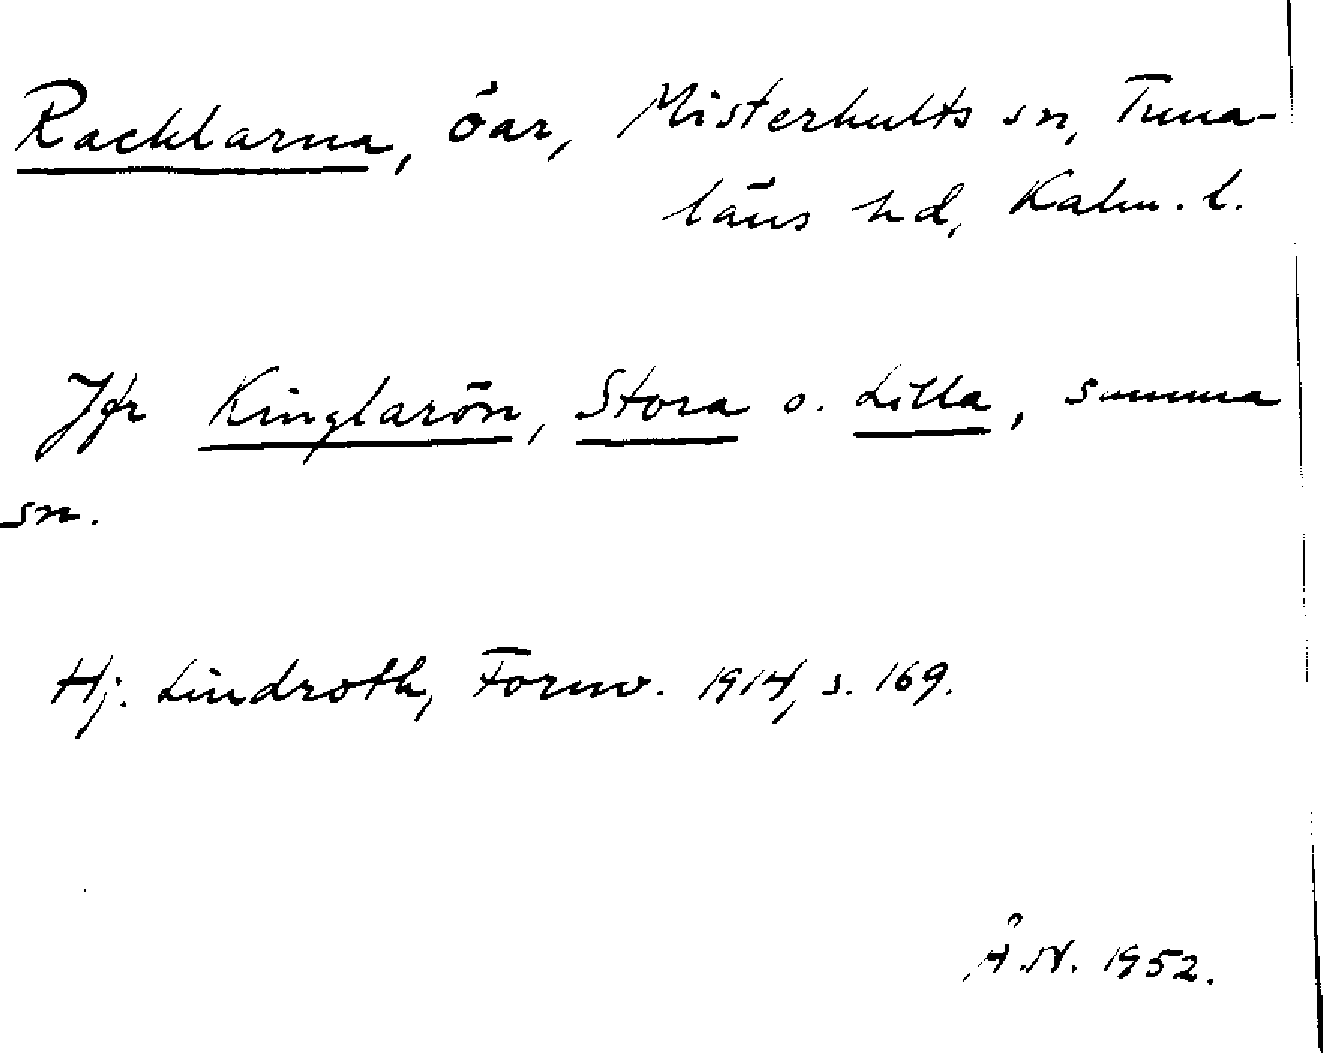 Racklarna, öar, Misterhults sn, Tuna-
läns hd, Kalm. l.
Jfr Kinglarön, Stora o. Lilla, summa
sn.
Hj. Lindroth, Fornv. 1914, s. 169.
Å.N. 1952.